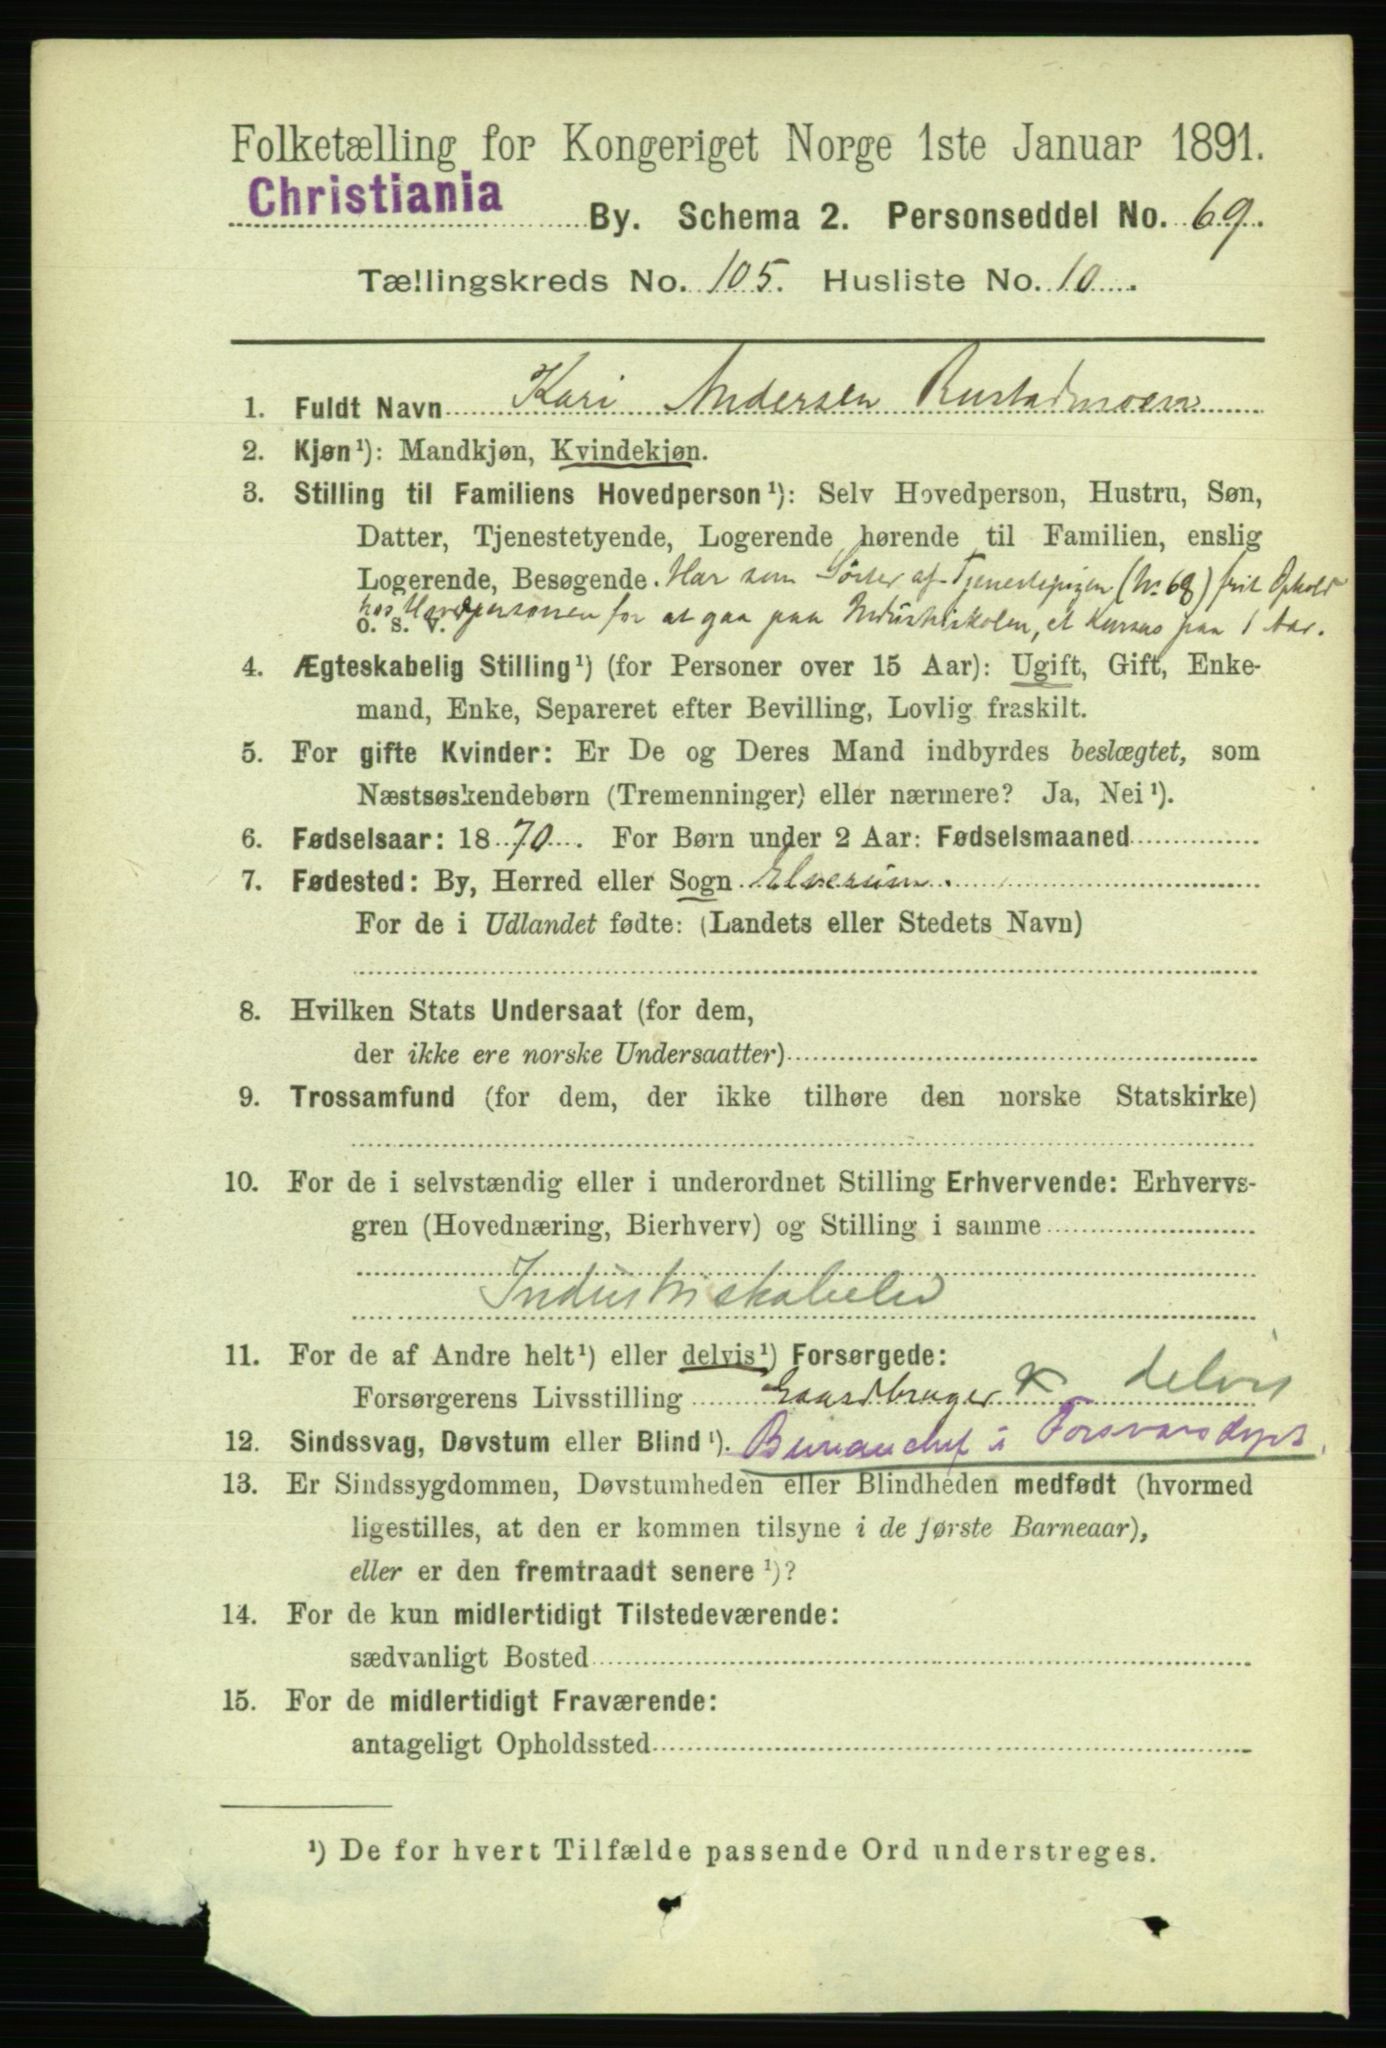 Folketælling for Kongeriget Norge 1ste Januar 1891.
Christiania By. Schema 2. Personseddel No. 69.
Tællingskreds No. 105. Husliste No. 10.
1. Fuldt Navn Kari Andersen Rustadmoen
2. Kjøn¹): Mandkjøn, Kvindekjøn.
3. Stilling til Familiens Hovedperson¹): Selv Hovedperson, Hustru, Søn,
Datter, Tjenestetyende, Logerende hørende til Familien, enslig
Logerende, Besøgende. Har som Söster af Tjenestepigen (No. 68) frit Ophold
hos Hovedpersonen for at gaa paa Industriskolen, et Kursus paa 1 Aar.
o. s. v.
4. Ægteskabelig Stilling¹) (for Personer over 15 Aar): Ugift, Gift, Enke-
mand, Enke, Separeret efter Bevilling, Lovlig fraskilt.
5. For gifte Kvinder: Er De og Deres Mand indbyrdes beslægtet, som
Næstsøskendebørn (Tremenninger) eller nærmere? Ja, Nei¹).
6. Fødselsaar: 1870. For Børn under 2 Aar: Fødselsmaaned
7. Fødested: By, Herred eller Sogn Elverum.
For de i Udlandet fødte: (Landets eller Stedets Navn)
8. Hvilken Stats Undersaat (for dem,
der ikke ere norske Undersaatter)
9. Trossamfund (for dem, der ikke tilhøre den norske Statskirke)
10. For de i selvstændig eller i underordnet Stilling Erhvervende: Erhvervs-
gren (Hovednæring, Bierhverv) og Stilling i samme
Industriskoleelev
11. For de af Andre helt¹) eller delvis¹) Forsørgede:
Forsørgerens Livsstilling Gaardbruger x delvis
12. Sindssvag, Døvstum eller Blind¹). Bureauchef i Forsvarsdept.
13. Er Sindssygdommen, Døvstumheden eller Blindheden medfødt (hvormed
ligestilles, at den er kommen tilsyne i de første Barneaar),
eller er den fremtraadt senere¹)?
14. For de kun midlertidigt Tilstedeværende:
sædvanligt Bosted
15. For de midlertidigt Fraværende:
antageligt Opholdssted
¹) De for hvert Tilfælde passende Ord understreges.